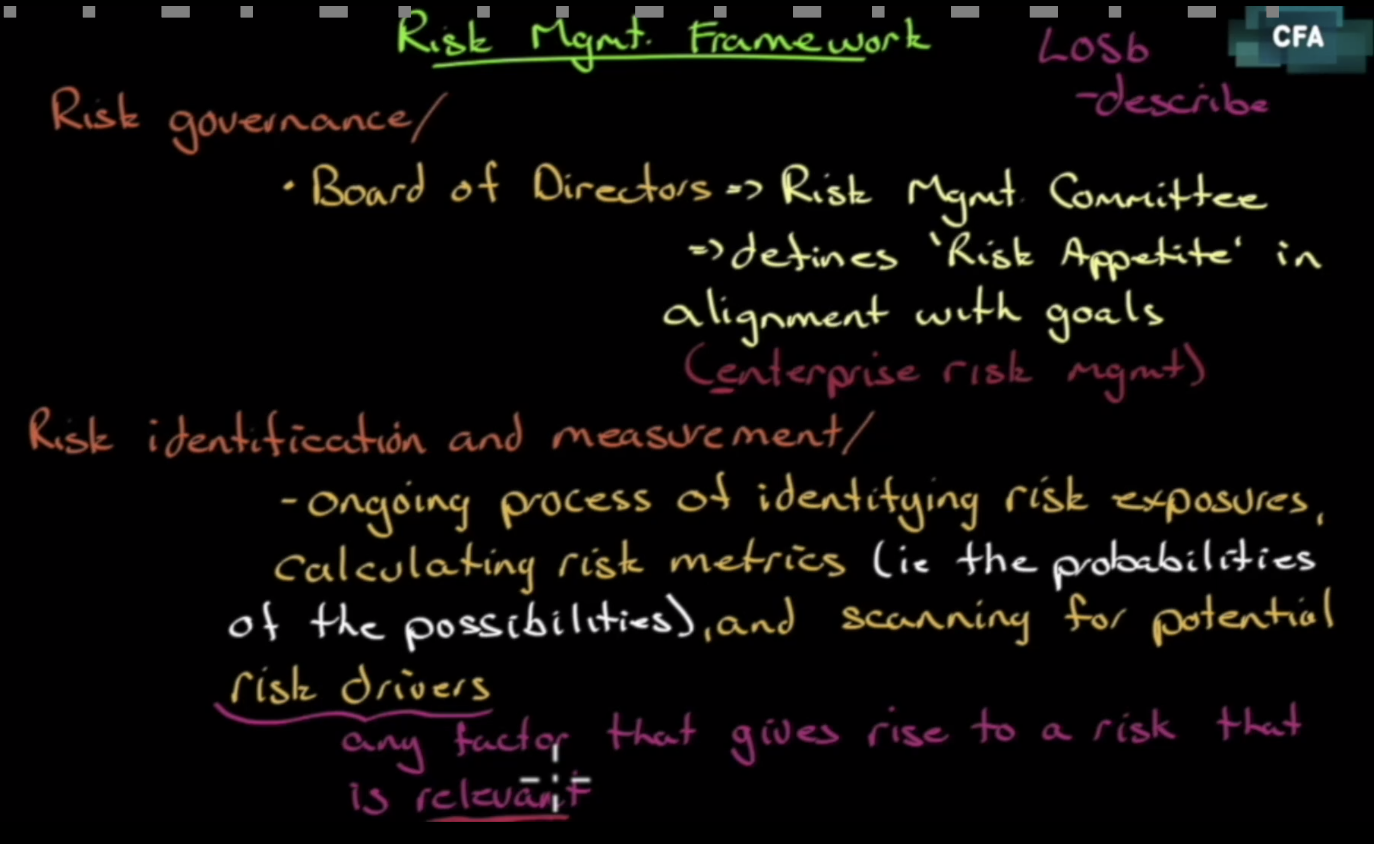 Risk Mgmt. Framework
LOSb
CFA
-describe
Risk governance/
• Board of Directors => Risk Mgmt. Committee
=> defines 'Risk Appetite' in
alignment with goals
(enterprise risk mgmt)
Risk identification and measurement/
- ongoing process of identifying risk exposures,
calculating risk metrics (ie the probabilities
of the possibilities), and scanning for potential
risk drivers
any factor that gives rise to a risk that
is relevant